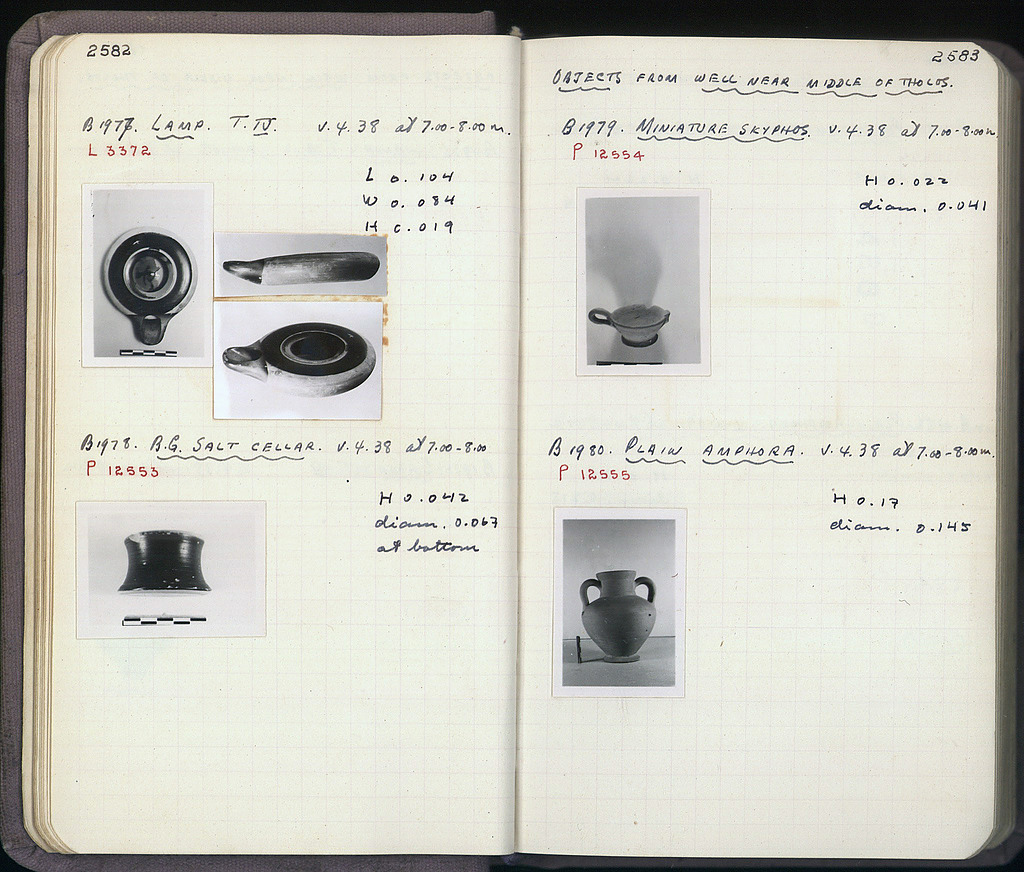 2582
B1977. LAMP. T. IV. V. 4. 38 at 7.00-8.00 m.
L 3372
L 0.104
W 0.084
H 0.019
B1978. B.G. SALT CELLAR. V. 4. 38 at 7.00-8.00
P 12553
H 0.042
diam. 0.067
at bottom
2583
OBJECTS FROM WELL NEAR MIDDLE OF THOLOS.
B1979. MINIATURE SKYPHOS. V. 4. 38 at 7.00-8.00 m.
P 12554
H 0.022
diam. 0.041
B1980. PLAIN AMPHORA. V. 4. 38 at 7.00-8.00 m.
P 12555
H 0.17
diam. 0.145